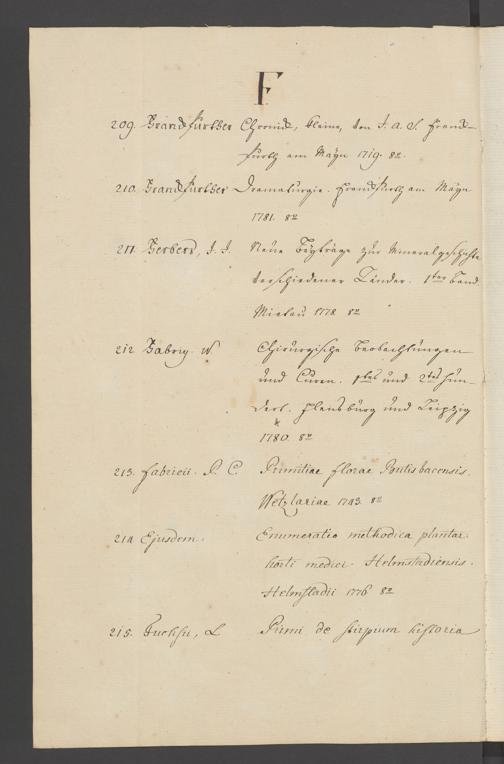 F
209. Franckfurther Chronick, kleine, von J. A. S. Franck-
furth am Mayn 1719. 8º.
210. Franckfurther Dramaturgie. Franckfurth am Mayn
1781. 8º
211. Ferbers, J. J. Neue Beyträge zur Mineralgeschichte
verschiedener Länder. 1ster Band.
Mietau 1778. 8º
212. Fabriz. W. Chirurgische Beobachtungen
und Curen. 1stes und 2tes Hun-
dert. Flensburg und Leipzig
1780. 8º
213. Fabricii. P. C. Primitiae florae Butisbacensis.
Wetzlariae 1743. 8º
214. Ejusdem. Enumeratio methodica plantar.
horti medici Helmstadiensis.
Helmstadii 1776 8º
215. Fuchsii, L Primi de stirpium historia